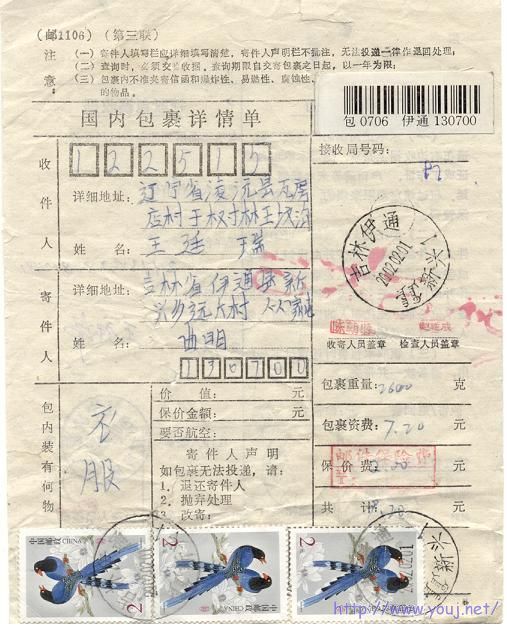 (邮1106)(第三联)
注意:
(一)寄件人填写栏应详细填写清楚,寄件人声明栏不批注,无法投递一律作退回处理;
(二)查询时,必须交验收据。查询期限自交寄包裹之日起,以一年为限;
(三)包裹内不准夹寄信函和爆炸性、易燃性、腐蚀性、
的物品。
包 0706 伊通 130700
国内包裹详情单
接收局号码:
收件人
122515
详细地址:辽宁省凌沅县瓦房
店村于杖村林王坟沟
姓名:王廷瑞
吉林伊通
2002.02.01
新兴
寄件人
详细地址:吉林省伊通县新
兴乡远大村
姓名:曲明
130700
收寄人员盖章 检查人员盖章
包内装有何物
衣服
价值: 元
保价金额: 元
要否航空:
寄件人声明
如包裹无法投递,请:
1.退还寄人
2.抛弃处理
3.改寄:
包裹重量:2600 克
包裹资费:7.20 元
保价费: 元
共计 元
中国邮政 CHINA 2
中国邮政 CHINA 2
中国邮政 CHINA 2
http://www.youj.net/